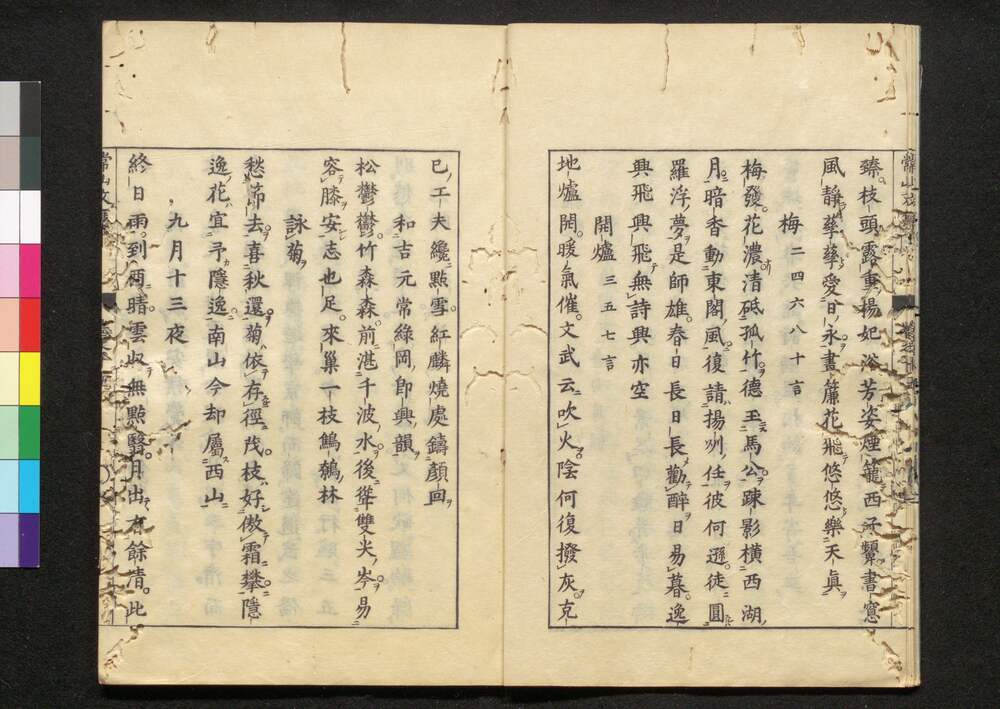 臻枝頭露重楊妃浴芳姿煙籠西子顰書窓
風靜華華愛日永晝簾花飛悠悠樂天眞
梅 二四六八十言
梅發花濃清砥孤竹德王馬公疎影橫西湖
月暗香動東閣風復請揚州任彼何遜徒圓
羅浮夢是師雄春日長日長勸醉日易暮逸
興飛興飛無詩興亦空
開爐 三五七言
地爐開暖氣催文武云吹火陰何復撥灰克
已工夫纔點雪紅麟燒處鑄顏回
和吉元常綠岡卽興韻
松鬱鬱竹森森前湛千波水後聳雙尖岑易
容膝安志也足來巢一枝鷦鷯林
詠菊
愁節去喜秋還菊依存徑戊枝好傲霜攀隱
逸花宜予隱逸南山今却屬西山
九月十三夜
終日雨到雨晴雲收無點翳月出有餘清此